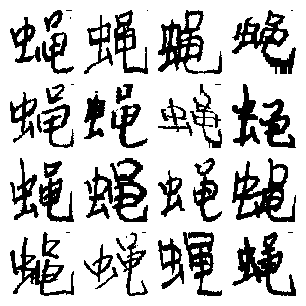 蝇蝇蝇蝇
蝇蝇蝇蝇
蝇蝇蝇蝇
蝇蝇蝇蝇